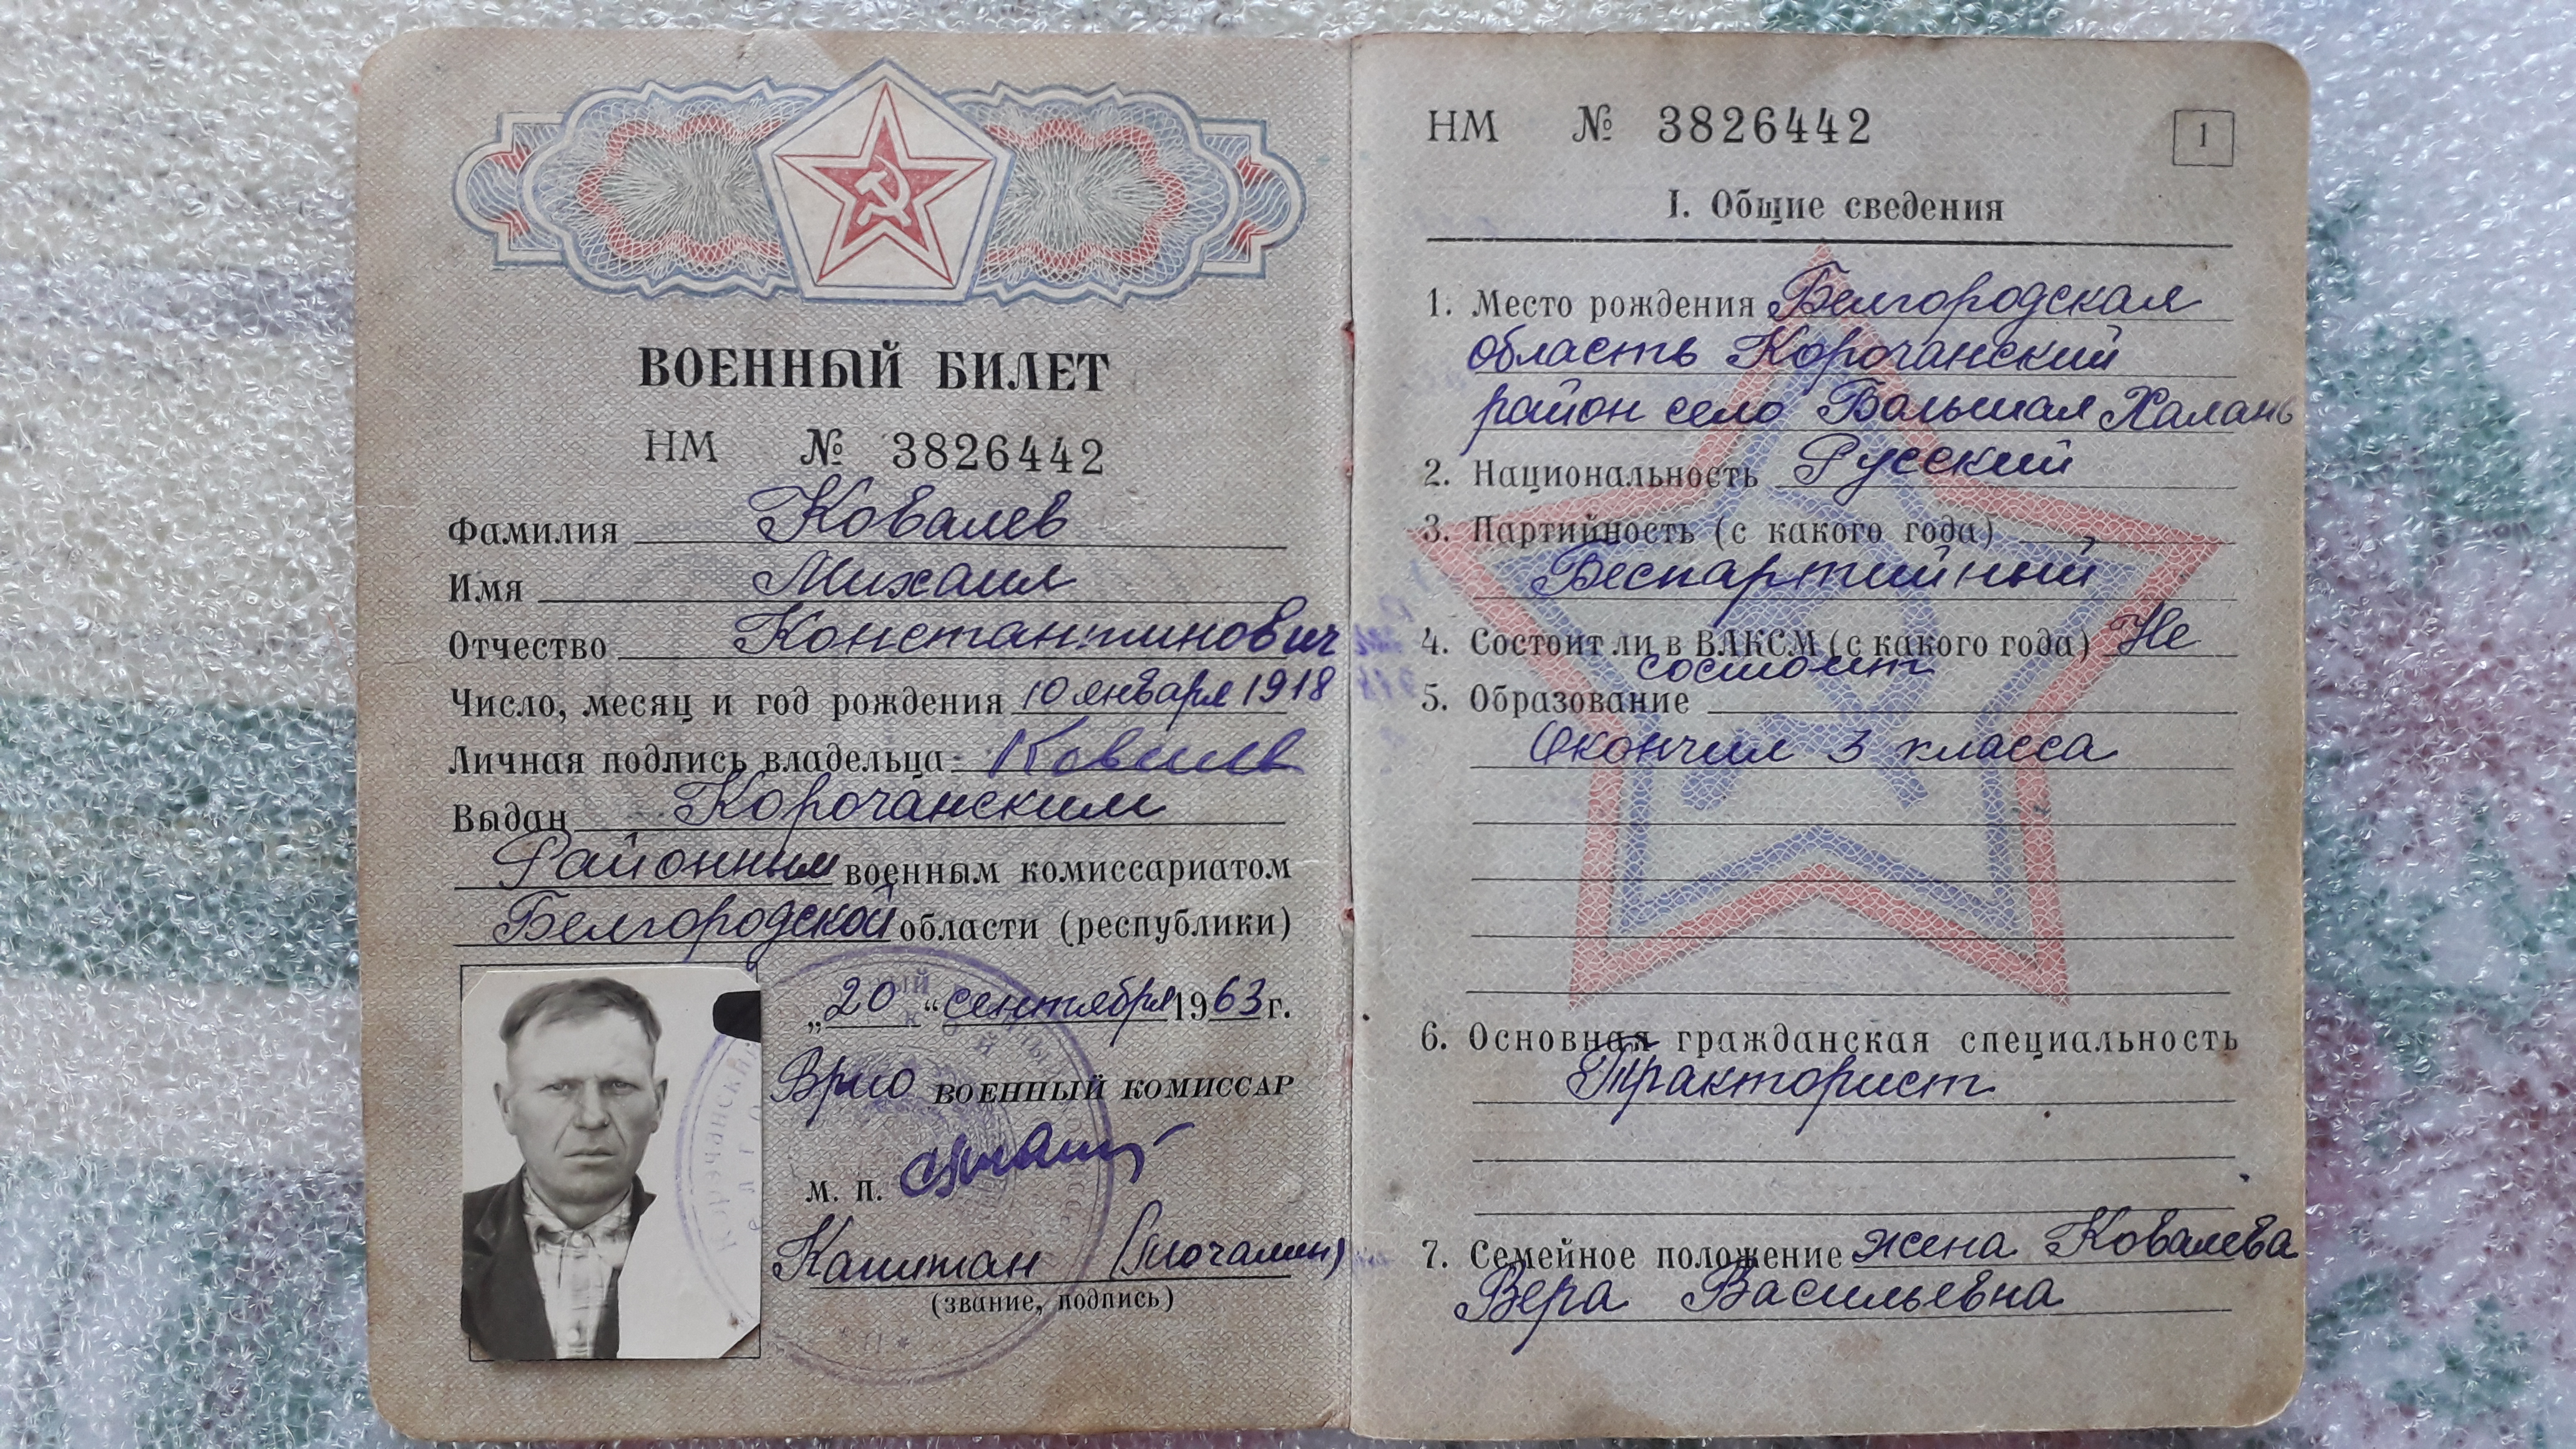 ВОЕННЫЙ БИЛЕТ
НМ № 3826442
Фамилия Ковалев
Имя Михаил
Отчество Константинович
Число, месяц и год рождения 10 января 1918
Личная подпись владельца Ковалев
Выдан Корочанским
Районным военным комиссариатом
Белгородской области (республики)
„20“ сентября 1963 г.
Врио ВОЕННЫЙ КОМИССАР
М. П.
Капитан
(звание, подпись)
НМ № 3826442
1
I. Общие сведения
1. Место рождения Белгородская
область Корочанский
район село Большая Халань
2. Национальность Русский
3. Партийность (с какого года)
Беспартийный
4. Состоит ли в ВЛКСМ (с какого года) Не
состоит
5. Образование
Окончил 3 класса
6. Основная гражданская специальность
Тракторист
7. Семейное положение жена Ковалева
Вера Васильевна